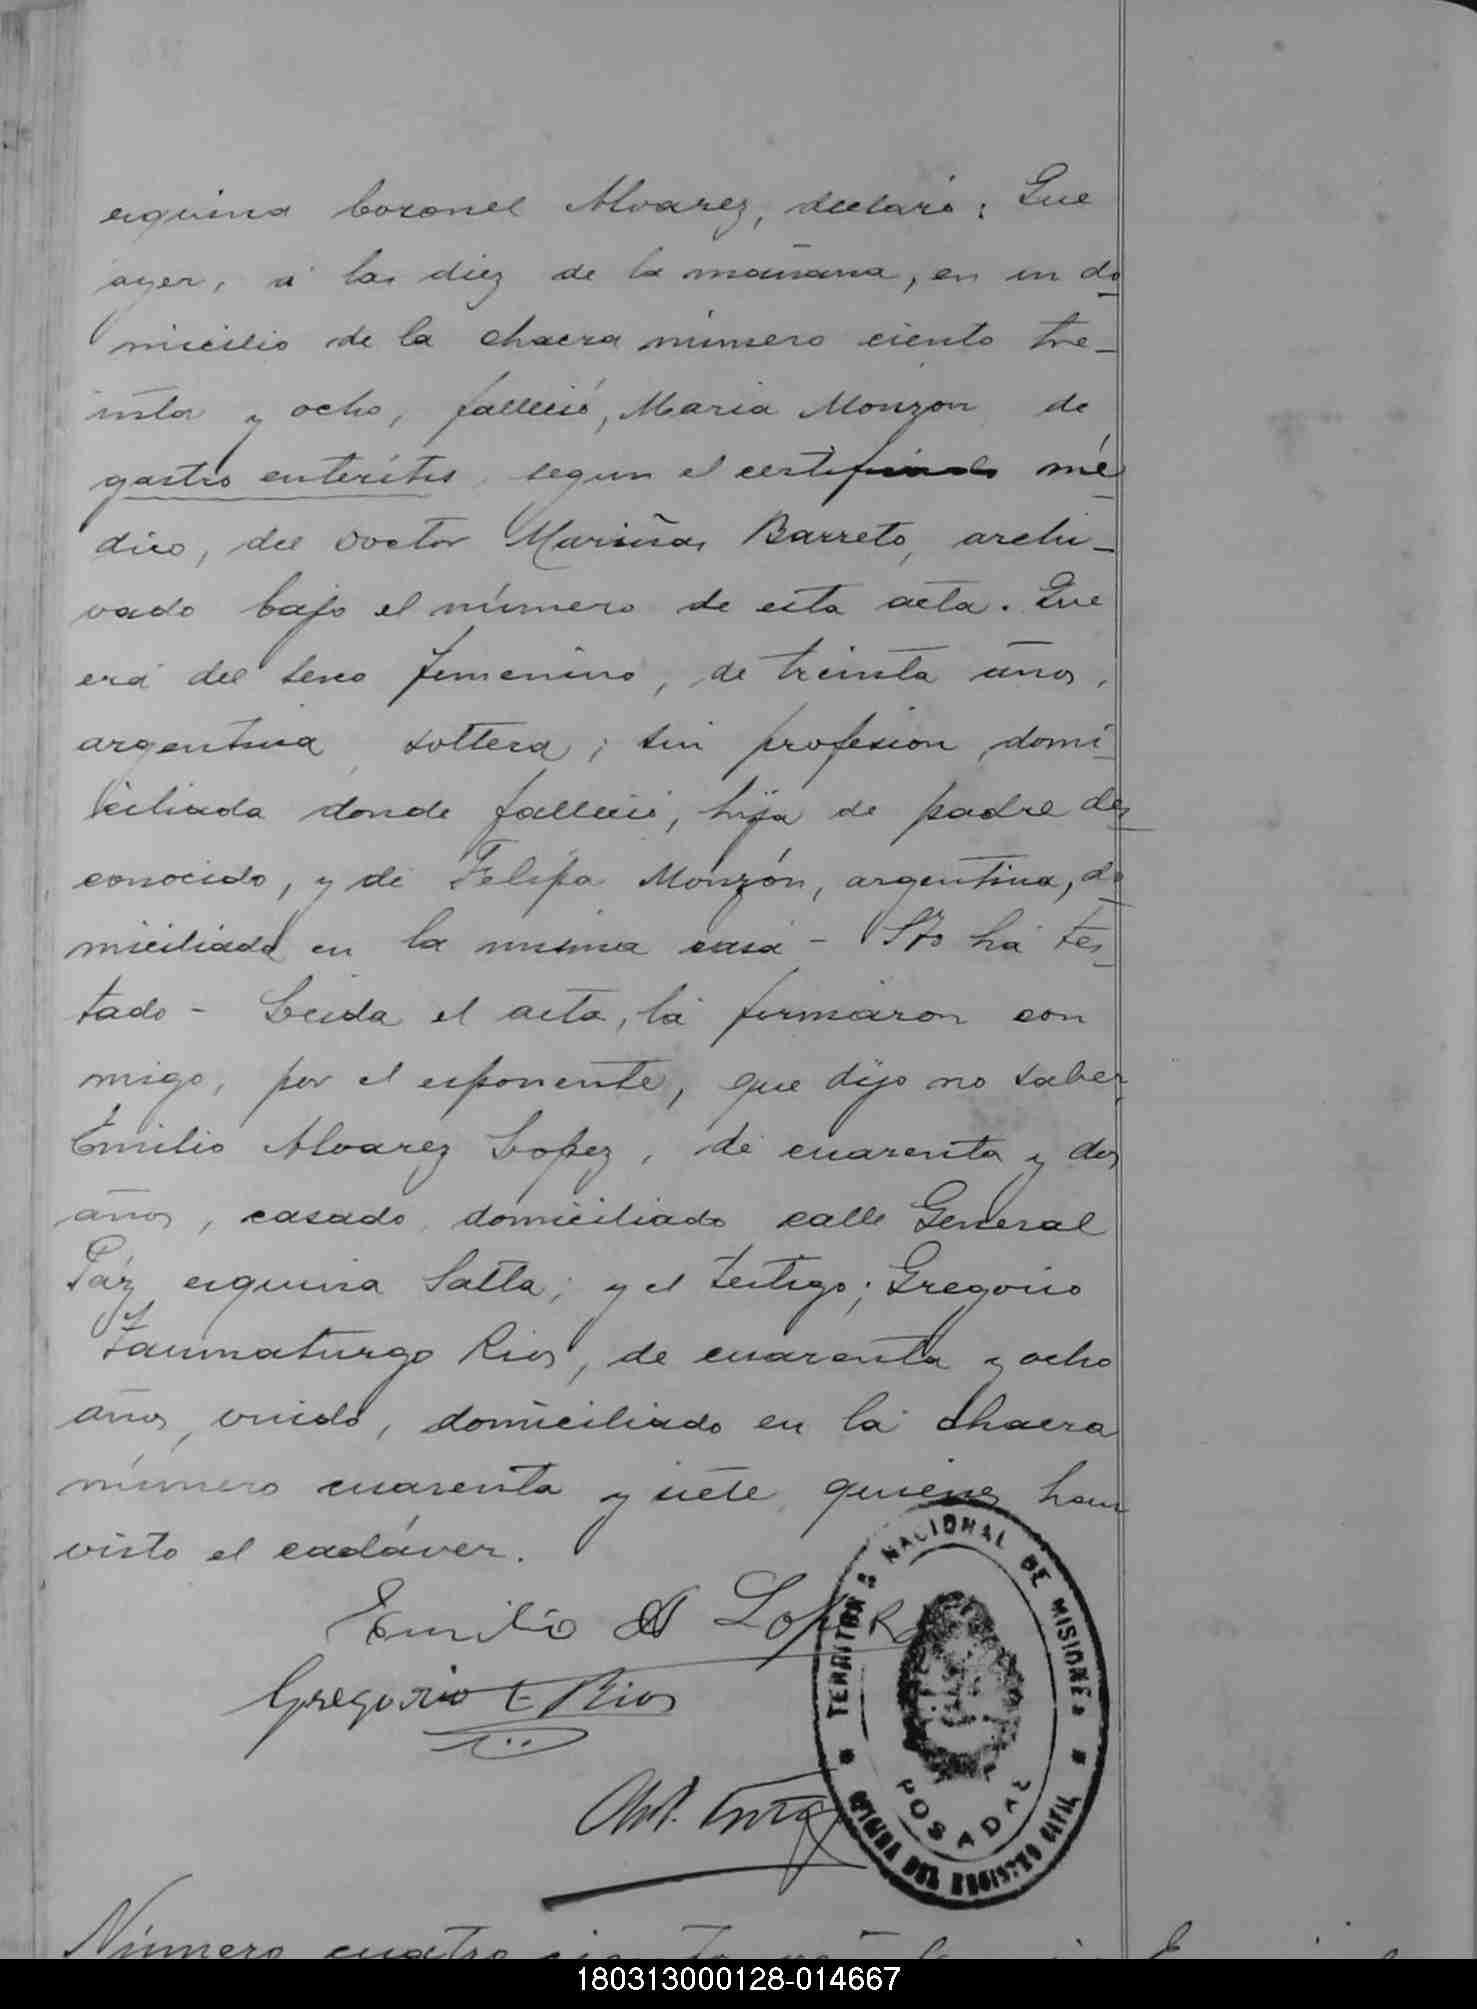 esquina Coronel Alvarez, declaró: Que
ayer, á las diez de la mañana, en su do
micilio de la chacra número ciento tre-
inta y ocho, falleció, Maria Monzon de
gastro enterítis, segun el certificado mé
dico, del Doctor Mariñas Barreto, archi-
vado bajo el número de esta acta. Que
era del sexo femenino, de treinta años,
argentina soltera; sin profesion, domi
ciliada donde falleció, hija de padre des
conocido, y de Felipa Monzón, argentina, do
miciliada en la misma casa - No ha tes
tado - Leida el acta, la firmaron con
migo, por el esponente, que dijo no saber,
Emilio Alvarez Lopez, de cuarenta y dos
años, casado, domiciliado calle General
Páz esquina Salta; y el testigo; Gregorio
Taumaturgo Rios, de cuarenta y ocho
años, viudo, domiciliado en la chacra
número cuarenta y siete, quienes han
visto el cadáver.
Emilio A Lopez
Gregorio T Rios
TERRITORIO NACIONAL DE MISIONES
POSADAS
OFICINA DEL REGISTRO CIVIL
Número cuatrocientos
180313000128-014667